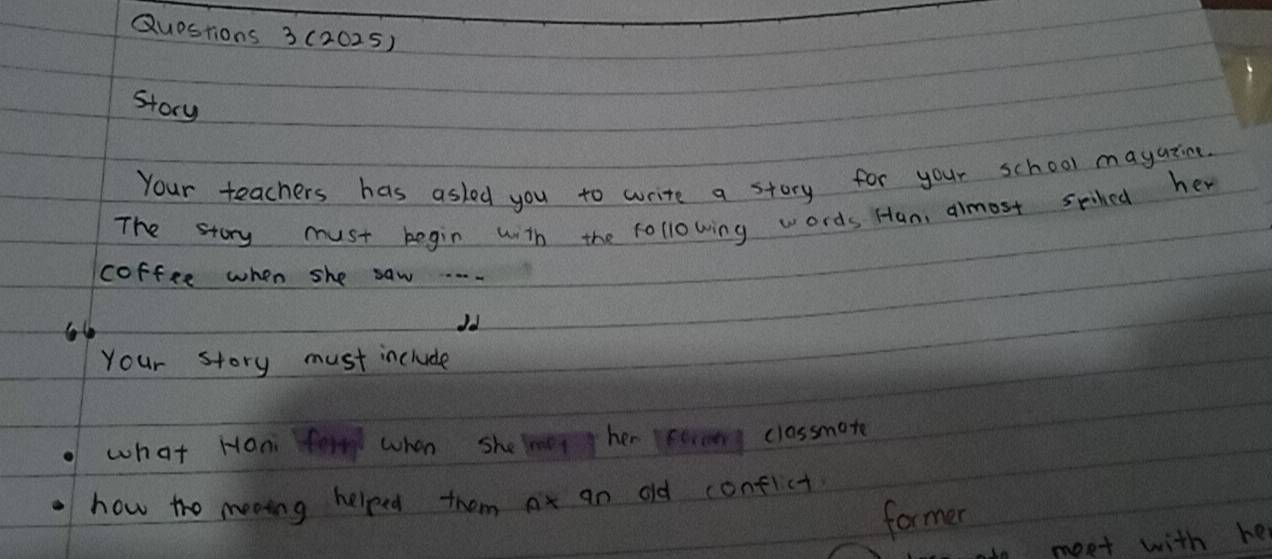 Questions 3 (2025)
Story
Your teachers has asled you to write a story for your school magazine.
The story must begin with the following words Hani almost spilled her
coffee when she saw ----
“ ”
Your story must include
• what Hani felt when she met her former classmate
• how the meeting helped them fix an old conflict.
former
meet with her